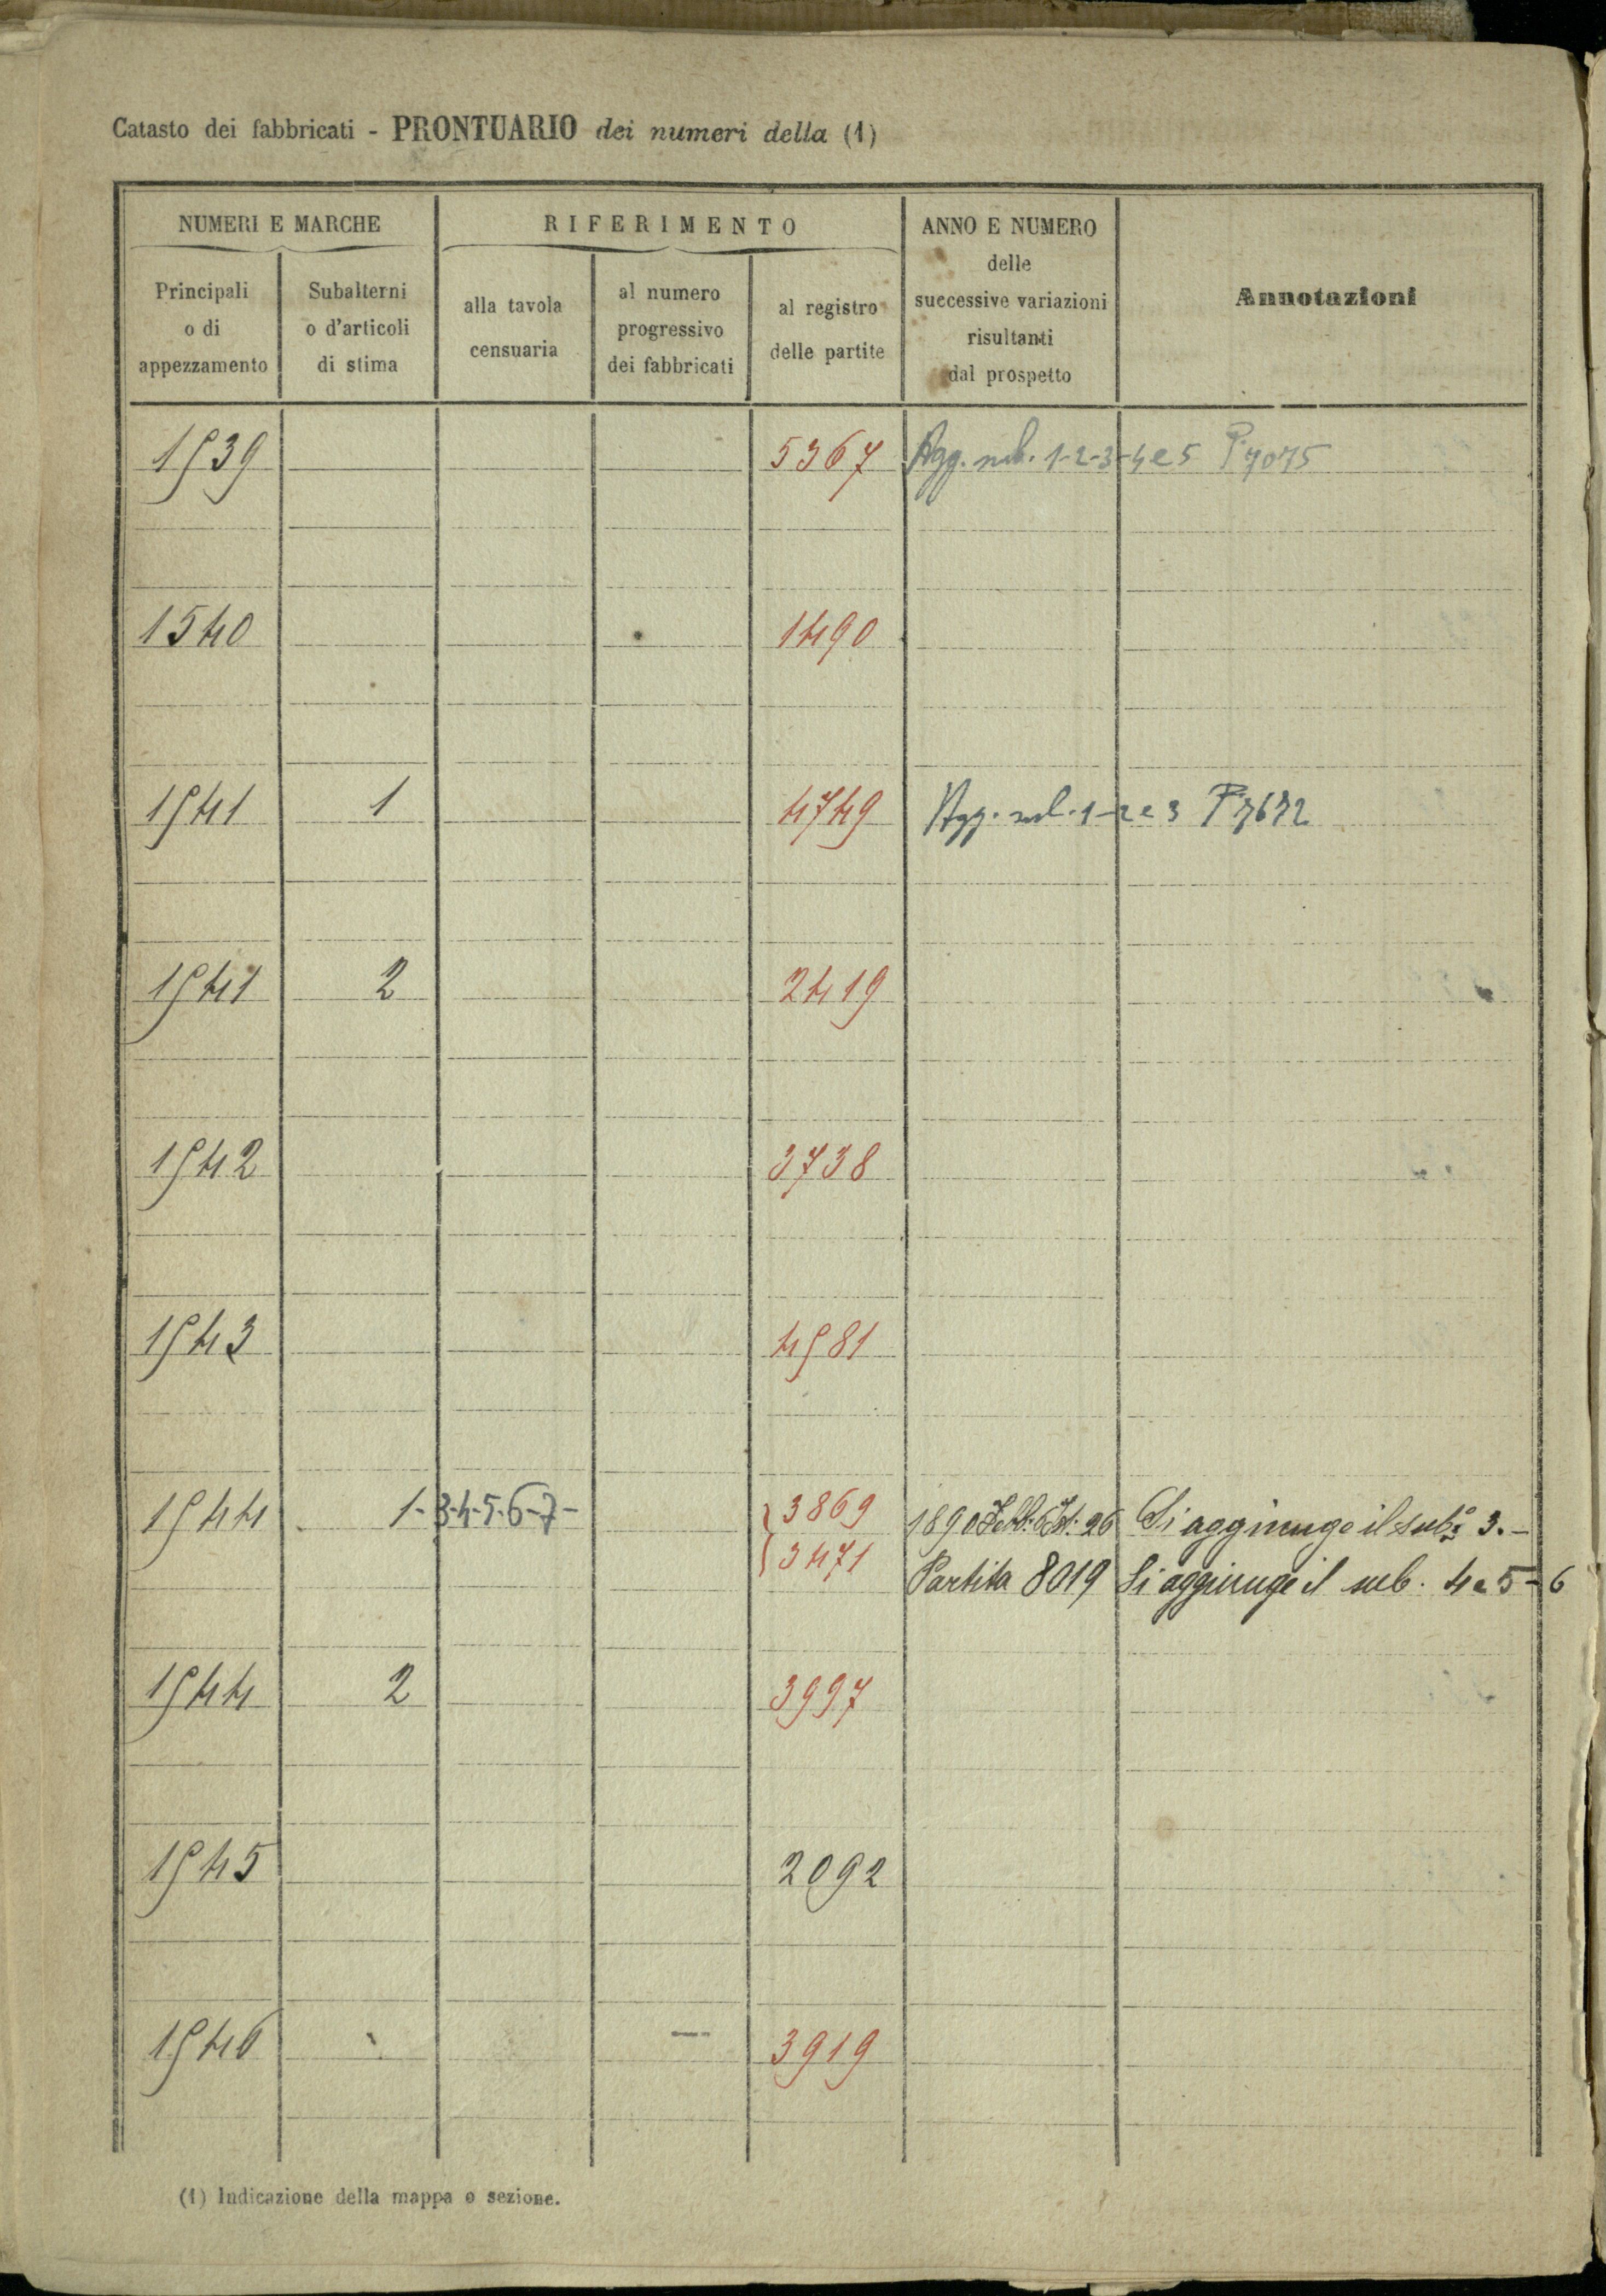 Catasto dei fabbricati - PRONTUARIO dei numeri della (1)
NUMERI E MARCHE
RIFERIMENTO
ANNO E NUMERO
delle
successive variazioni
risultanti
dal prospetto
Annotazioni
Principali
o di
appezzamento
Subalterni
o d'articoli
di stima
alla tavola
censuaria
al numero
progressivo
dei fabbricati
al registro
delle partite
1539 5367 Agg. sub. 1-2-3-4 e 5 P. 7075
1540 1490
1541 1 4749 Agg. sub. 1-2 e 3 P. 7672
1541 2 2419
1542 3738
1543 4581
1544 1-3-4-5-6-7- 3869 1890 26 Si aggiunge il sub. 3.-
3471 Partita 8019 Si aggiunge il sub. 4 e 5-6
1544 2 3997
1545 2092
1546 3919
(1) Indicazione della mappa o sezione.